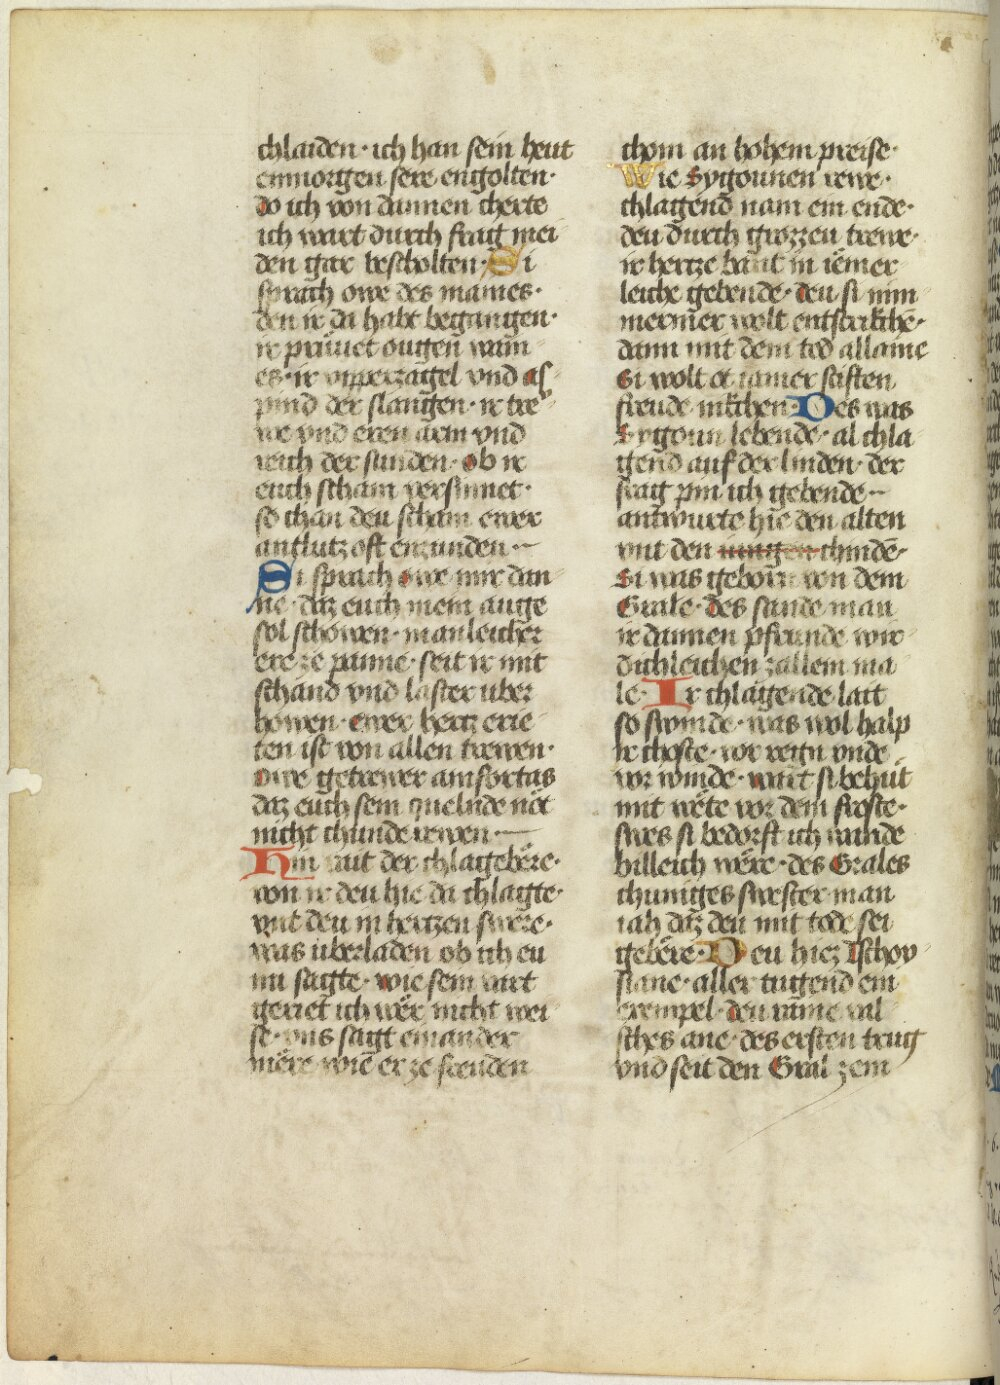 chlaiden · ich han sein heut
enmorgen sere engolten ·
do ich von dannen cherte
ich wart durch frag mei-
den gar bescholten · Si
sprach owe des mannes ·
den ir da habt begangen ·
ir prüuet ougen wain-
es · ir vipperzagel vnd as-
pind der slangen · ir tre-
we vnd eren arm vnd
reich der sunden · ob ir
euch scham versinnet ·
so chan deu scham ewer
antlutz oft enzunden ·
Si sprach owe mir dan-
ne · daz euch mein auge
sol schowen · manleicher
ere ze panne · seit ir mit
schand vnd laster uber
howen · ewer hertz erie-
ten ist von allen trewen ·
owe getrewer amfortas
daz euch sein quelnde not
nicht chunde rewen ·
Hin rait der chlagebëre ·
von ir deu hie da chlagte ·
mit deu in hertzen swëre ·
was uberladen ob ich eu
nu sagte · wie sein vart
geriet ich wër nicht wei-
se · vns sagt ein ander
mëre · wie er ze freuden
chom an hohem preise ·
Wie Sygounen rewe ·
chlagend nam ein ende ·
deu durch grozzen trewe ·
ir hertze bant in iemer
leiche gebende · deu si nim-
mermer wolt entstrikchē ·
dann mit dem tod allaine
Si wolt et iamer stiften
freude nikchen · Des was
Sygoun lebende · al chla-
gend auf der linden · der
frag pin ich gebende ·
antwurte hie den alten
mit den iungen chindē ·
Si was geborn von dem
Grale · des sande man
ir dannen pfrunde wir-
dichleichen zallem ma-
le · Ir chlagende lait
so swinde · was wol halp
ir choste · vor regn vnde
vor winde · wart si behut
mit wëte vor dem froste ·
swes si bedorft ich wunde
billeich wëre · des Grales
chuniges swester man
iah daz deu mit tode sei
gebëre · Deu hiez Tschoy-
siane · aller tugend ein
exempel · deu nīme val-
sches ane · des ersten trug
vnd seit den Gral zem